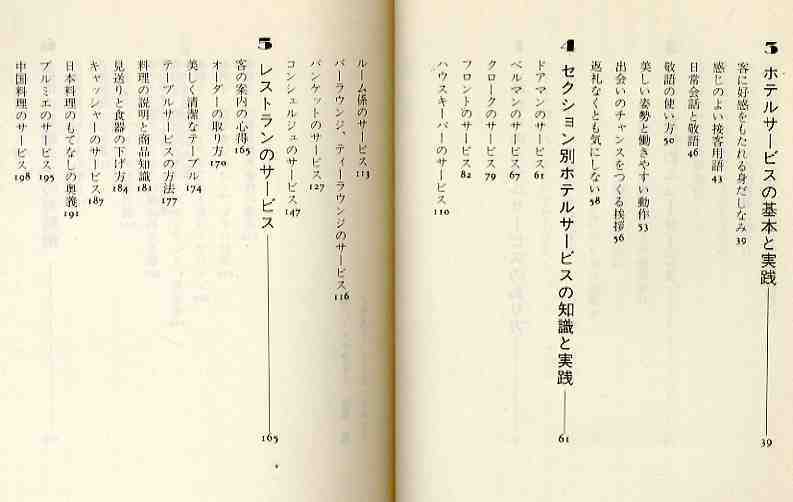 3 ホテルサービスの基本と実践 39
客に好感をもたれる身だしなみ 39
感じのよい接客用語 43
日常会話と敬語 46
敬語の使い方 50
美しい姿勢と働きやすい動作 53
出会いのチャンスをつくる挨拶 56
返礼なくとも気にしない 58
4 セクション別ホテルサービスの知識と実践 61
ドアマンのサービス 61
ベルマンのサービス 67
クロークのサービス 79
フロントのサービス 82
ハウスキーパーのサービス 110
ルーム係のサービス 113
バーラウンジ、ティーラウンジのサービス 116
バンケットのサービス 127
コンシェルジュのサービス 147
5 レストランのサービス 165
客の案内の心得 165
オーダーの取り方 170
美しく清潔なテーブル 174
テーブルサービスの方法 177
料理の説明と商品知識 181
見送りと食器の下げ方 184
キャッシャーのサービス 187
日本料理のもてなしの奥義 191
プルミエのサービス 195
中国料理のサービス 198